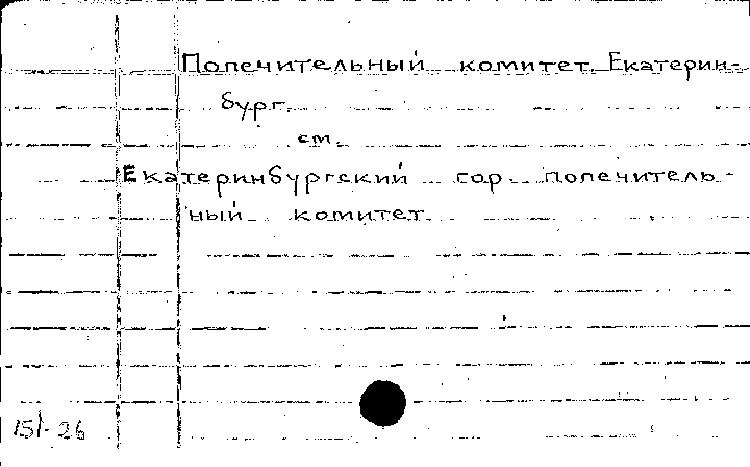 Попечительный комитет. Екатерин-
бург.
см.
Екатеринбургский гор. попечитель-
ный комитет
151-26